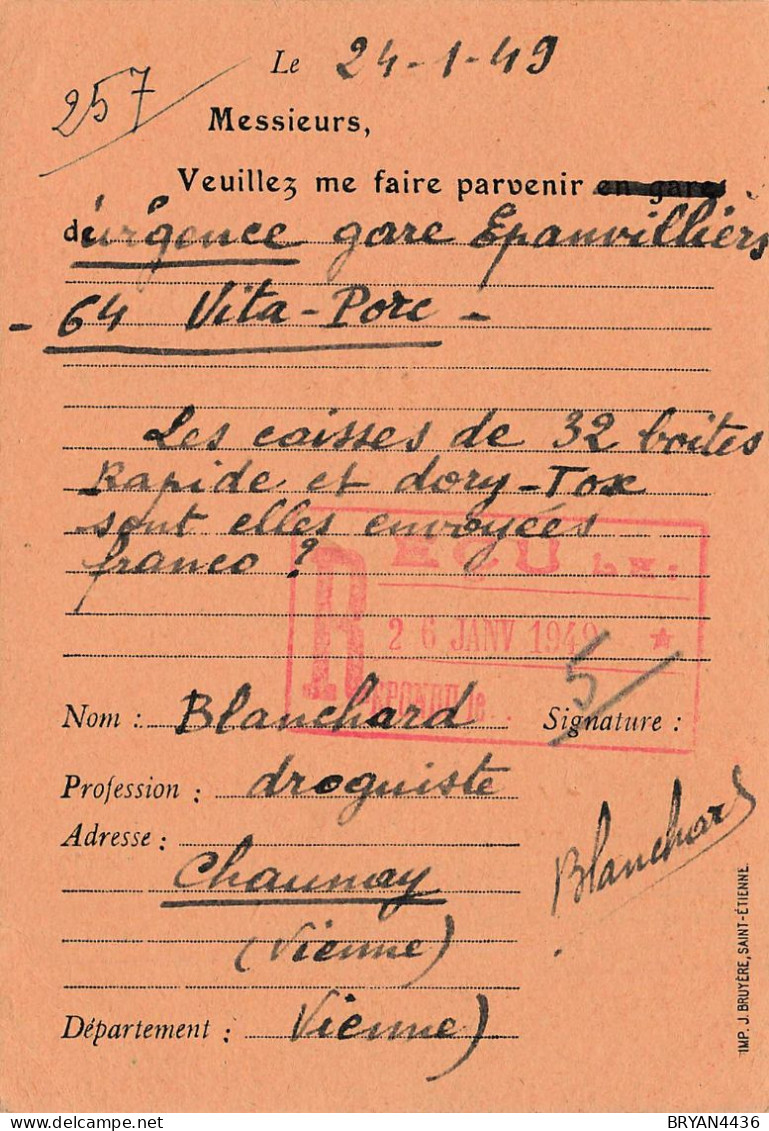 Le 24-1-49
257
Messieurs,
Veuillez me faire parvenir en gare
de urgence gare Epanvilliers
- 64 Vita-Porc -
Les caisses de 32 boites
Rapide et dory-Tox
sont elles envoyées
franco ?
REÇU le :
26 JANV 1949 ★
RÉPONDU le
5
Nom : Blanchard Signature :
Profession : droguiste
Adresse :
Chaunay
Blanchard
(Vienne)
Département : Vienne)
IMP. J. BRUYÈRE, SAINT-ÉTIENNE.
BRYAN4436